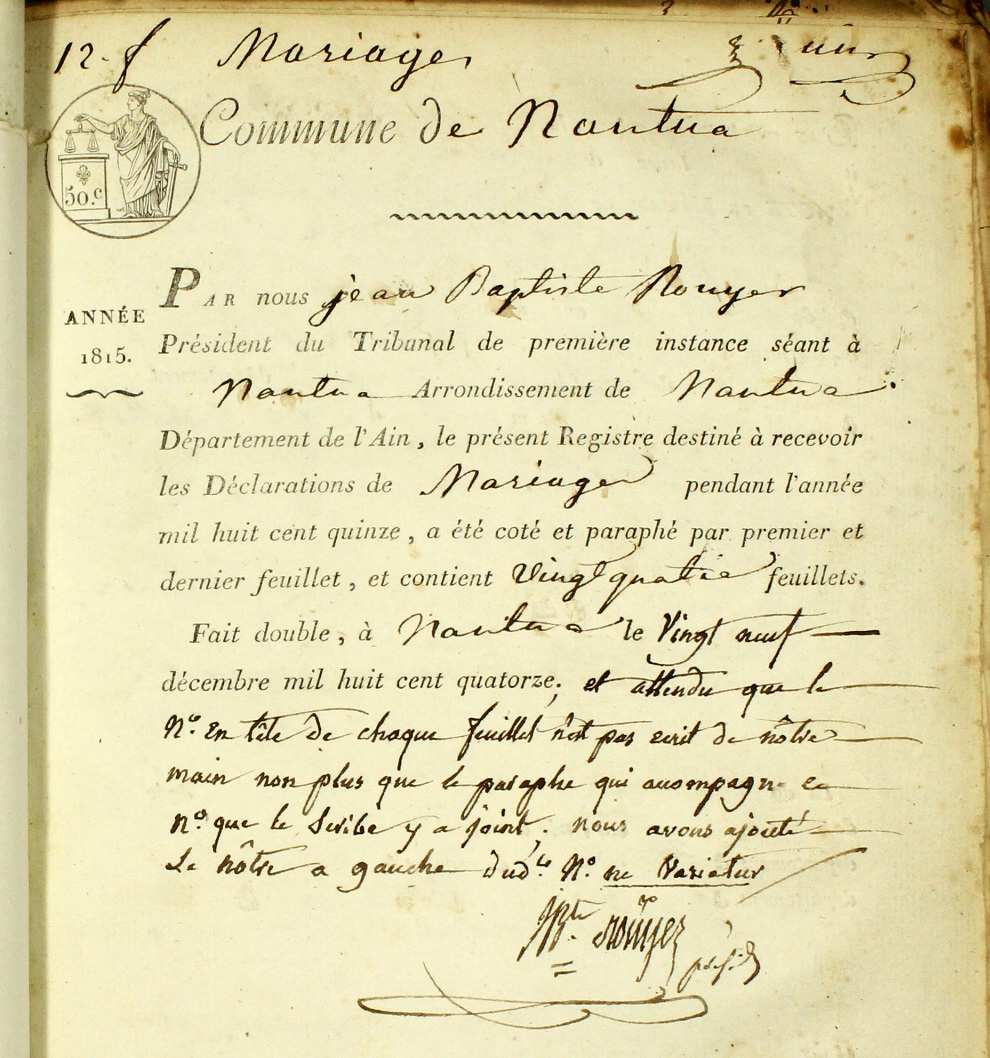 12. f Mariages un
Commune de Nantua
50.c
ANNÉE
1815.
PAR nous jean Baptiste Rouyer
Président du Tribunal de première instance séant à
Nantua Arrondissement de Nantua
Département de l'Ain, le présent Registre destiné à recevoir
les Déclarations de Mariages pendant l'année
mil huit cent quinze, a été coté et paraphé par premier et
dernier feuillet, et contient vingt quatre feuillets.
Fait double, à Nantua le Vingt neuf
décembre mil huit cent quatorze; et attendu que le
N.o En tête de chaque feuillet n'est pas ecrit de nôtre
main non plus que le paraphe qui acompagne ce
n.o que le Scribe y a joint; nous avons ajouté
Le nôtre a gauche dud.t N.o ne Varietur
JBte rouÿer
présid